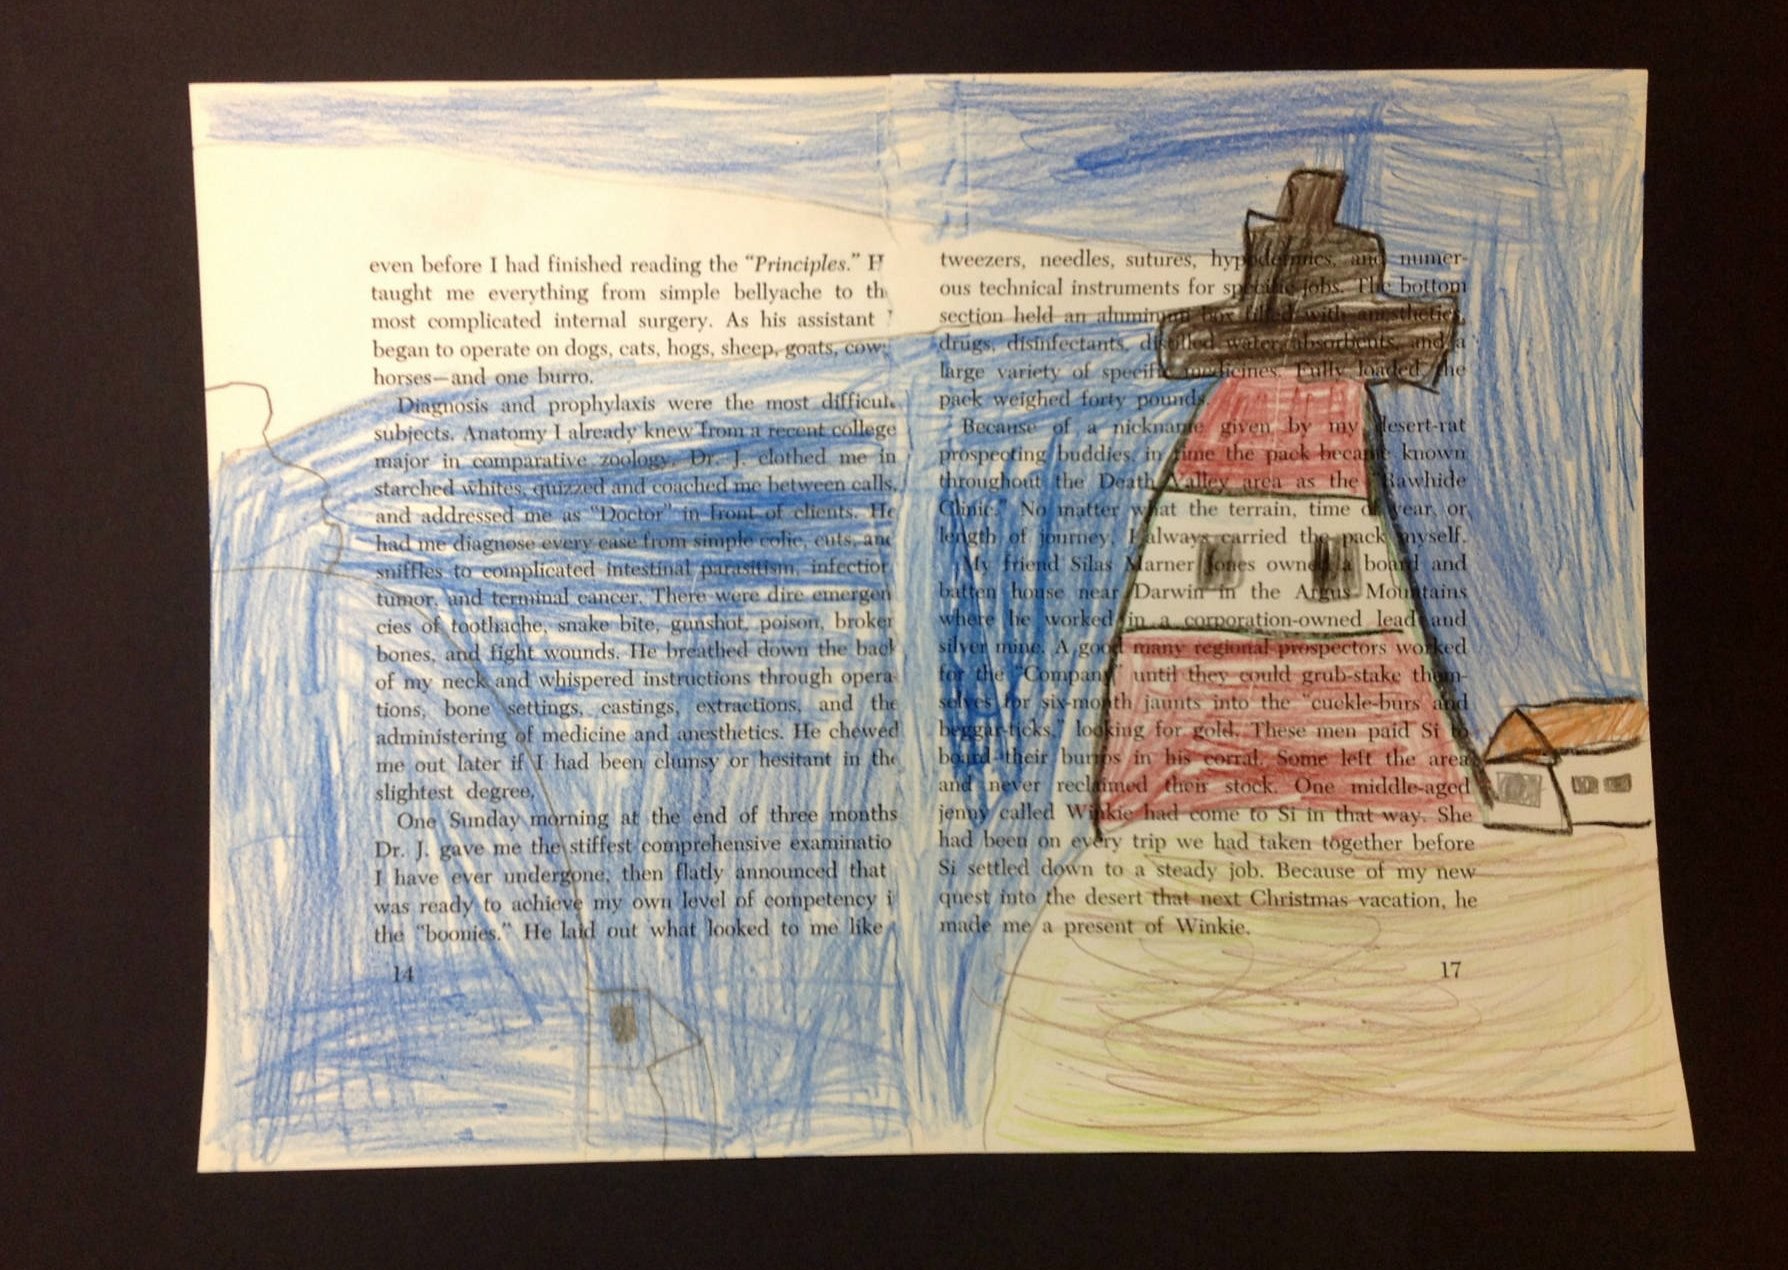 even before I had finished reading the “Principles.” H
taught me everything from simple bellyache to th
most complicated internal surgery. As his assistant
began to operate on dogs, cats, hogs, sheep, goats, cow
horses—and one burro.
Diagnosis and prophylaxis were the most difficul
subjects. Anatomy I already knew from a recent college
major in comparative zoology. Dr. J. clothed me in
starched whites, quizzed and coached me between calls,
and addressed me as “Doctor” in front of clients. He
had me diagnose every case from simple colic, cuts, and
sniffles to complicated intestinal parasitism, infection
tumor, and terminal cancer. There were dire emergen
cies of toothache, snake bite, gunshot, poison, broken
bones, and fight wounds. He breathed down the back
of my neck and whispered instructions through opera
tions, bone settings, castings, extractions, and the
administering of medicine and anesthetics. He chewed
me out later if I had been clumsy or hesitant in the
slightest degree.
One Sunday morning at the end of three months
Dr. J. gave me the stiffest comprehensive examinatio
I have ever undergone, then flatly announced that
was ready to achieve my own level of competency i
the “boonies.” He laid out what looked to me like
14
tweezers, needles, sutures, hypodermics, and numer-
ous technical instruments for specific jobs. The bottom
section held an aluminum box filled with anesthetics,
drugs, disinfectants, distilled water, absorbents, and a
large variety of specific medicines. Fully loaded the
pack weighed forty pounds.
Because of a nickname given by my desert-rat
prospecting buddies, in time the pack became known
throughout the Death Valley area as the “Rawhide
Clinic.” No matter what the terrain, time of year, or
length of journey, I always carried the pack myself.
My friend Silas Marner Jones owned a board and
batten house near Darwin in the Argus Mountains
where he worked in a corporation-owned lead and
silver mine. A good many regional prospectors worked
for the “Company” until they could grub-stake them-
selves for six-month jaunts into the “cuckle-burs and
beggar-ticks,” looking for gold. These men paid Si to
board their burros in his corral. Some left the area
and never reclaimed their stock. One middle-aged
jenny called Winkie had come to Si in that way. She
had been on every trip we had taken together before
Si settled down to a steady job. Because of my new
quest into the desert that next Christmas vacation, he
made me a present of Winkie.
17